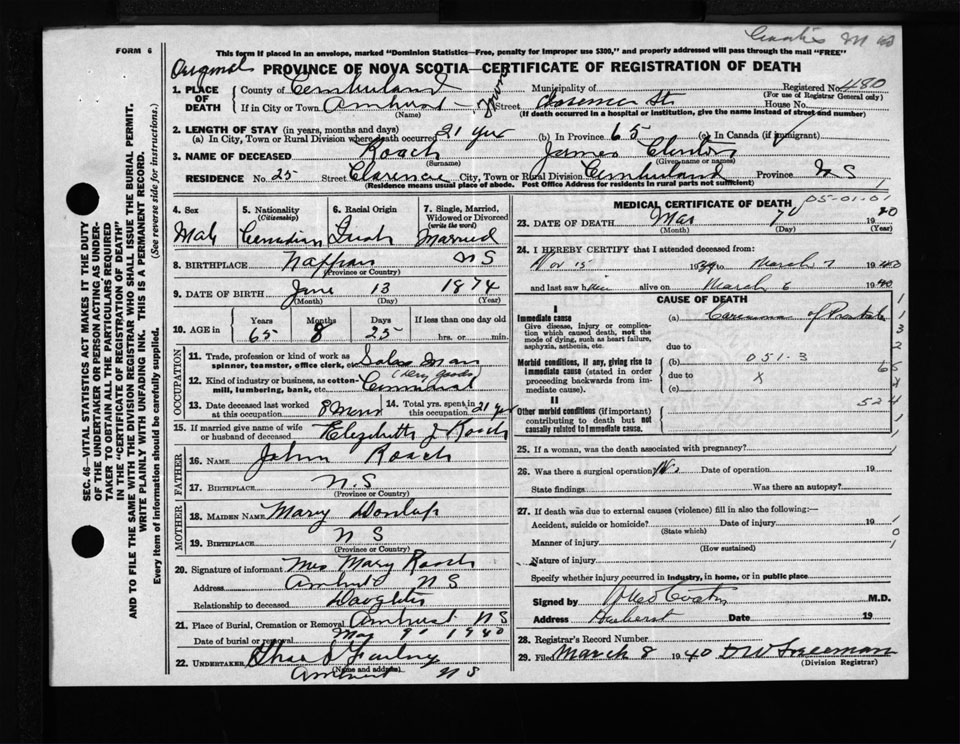 FORM 6
This form if placed in an envelope, marked "Dominion Statistics—Free, penalty for improper use $300," and properly addressed will pass through the mail "FREE"
Original
PROVINCE OF NOVA SCOTIA—CERTIFICATE OF REGISTRATION OF DEATH
1. PLACE OF DEATH
County of Cumberland Municipality of Registered No. 480
(For use of Registrar General only)
If in City or Town Amherst Street House No.
(Name) (If death occurred in a hospital or institution, give the name instead of street and number)
2. LENGTH OF STAY (in years, months and days)
(a) In City, Town or Rural Division where death occurred 21 yrs (b) In Province 65 (c) In Canada (if immigrant)
3. NAME OF DECEASED Roach James Clinton
(Surname) (Given name or names)
RESIDENCE No. 25 Street Clarence City, Town or Rural Division Cumberland Province N S
(Residence means usual place of abode. Post Office Address for residents in rural parts not sufficient)
4. Sex Male
5. Nationality (Citizenship) Canadian
6. Racial Origin
7. Single, Married, Widowed or Divorced (write the word) Married
8. BIRTHPLACE Nappan N S
(Province or Country)
9. DATE OF BIRTH June 13 1874
(Month) (Day) (Year)
10. AGE in Years Months Days If less than one day old
65 8 25 hrs. or min.
OCCUPATION
11. Trade, profession or kind of work as spinner, teamster, office clerk, etc. Sales Man
12. Kind of industry or business, as cotton-mill, lumbering, bank, etc. (dry goods) Commercial
13. Date deceased last worked at this occupation 8 Mons
14. Total yrs. spent in this occupation 21 yrs
15. If married give name of wife or husband of deceased Elizabeth J Roach
FATHER
16. Name John Roach
17. BIRTHPLACE N.S
(Province or Country)
MOTHER
18. MAIDEN NAME Mary Dunlap
19. BIRTHPLACE N S
(Province or Country)
20. Signature of informant Mrs Mary Roach
Address Amherst N S
Relationship to deceased Daughter
21. Place of Burial, Cremation or Removal Amherst N S
Date of burial or removal Mar 9 1940
22. UNDERTAKER
(Name and address)
Amherst N S
MEDICAL CERTIFICATE OF DEATH
05-01-01
23. DATE OF DEATH Mar 7 1940
(Month) (Day)
24. I HEREBY CERTIFY that I attended deceased from:
Nov 15 1939 to March 7 1940
and last saw him alive on March 6 1940
CAUSE OF DEATH
I
Immediate cause
Give disease, injury or complication which caused death, not the mode of dying, such as heart failure, asphyxia, asthenia, etc.
(a) Carcinoma of Prostate
due to
Morbid conditions, if any, giving rise to immediate cause (stated in order proceeding backwards from immediate cause).
(b) 051.3
due to X
(c)
II
Other morbid conditions (if important) contributing to death but not causally related to immediate cause.
524
25. If a woman, was the death associated with pregnancy?
26. Was there a surgical operation No Date of operation 19
State findings Was there an autopsy?
27. If death was due to external causes (violence) fill in also the following:—
Accident, suicide or homicide? Date of injury 19
(State which)
Manner of injury
(How sustained)
Nature of injury
Specify whether injury occurred in industry, in home, or in public place
Signed by M.D.
Address Amherst Date 19
28. Registrar's Record Number
29. Filed March 8 1940 D W Freeman
(Division Registrar)
SEC. 46—VITAL STATISTICS ACT MAKES IT THE DUTY OF THE UNDERTAKER OR PERSON ACTING AS UNDERTAKER TO OBTAIN ALL THE PARTICULARS REQUIRED IN THE "CERTIFICATE OF REGISTRATION OF DEATH"
AND TO FILE THE SAME WITH THE DIVISION REGISTRAR WHO SHALL ISSUE THE BURIAL PERMIT.
WRITE PLAINLY WITH UNFADING INK. THIS IS A PERMANENT RECORD.
Every item of information should be carefully supplied. (See reverse side for instructions.)